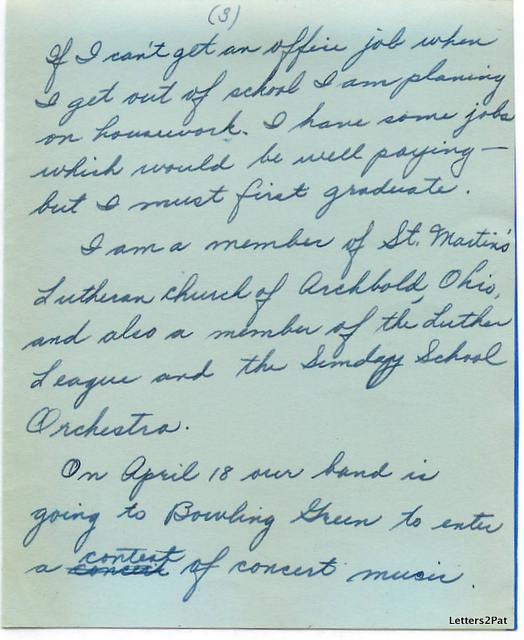 (3)
If I can't get an office job when
I get out of school I am planing
on housework. I have some jobs
which would be well paying—
but I must first graduate.
I am a member of St. Martin's
Lutheran church of Archbold, Ohio,
and also a member of the Luther
League and the Sunday School
Orchestra.
On April 18 our band is
going to Bowling Green to enter
contest
a concert of concert music.
Letters2Pat